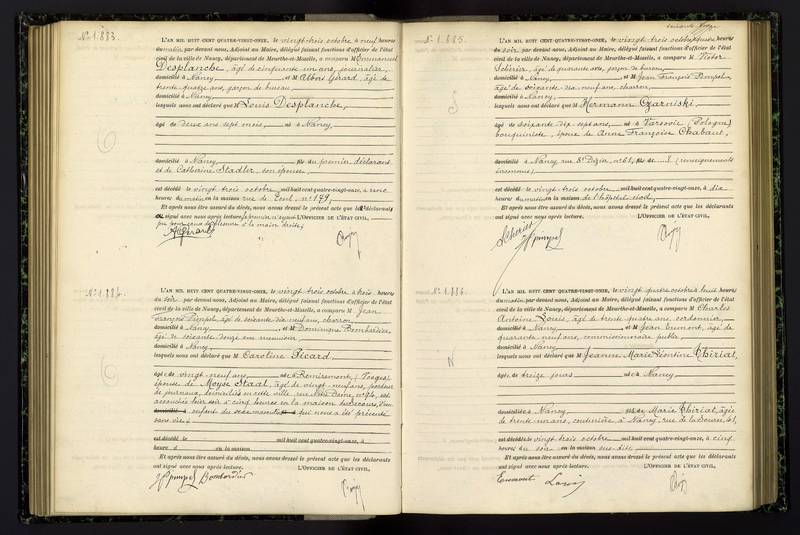 N° 1.883.
L'AN MIL HUIT CENT QUATRE-VINGT-ONZE, le vingt-trois octobre à neuf heures
du matin par devant nous, Adjoint au Maire, délégué faisant fonctions d'officier de l'état
civil de la ville de Nancy, département de Meurthe-et-Moselle, a comparu M Emmanuel
Desplanche, âgé de cinquante un ans, journalier,
domicilié à Nancy, et M Albert Gérard, âgé de
trente quatre ans, garçon de bureau
domicilié à Nancy,
lesquels nous ont déclaré que M Louis Desplanche,
âgé de deux ans sept mois, né à Nancy,
domicilié à Nancy, fils du premier déclarant
et de Catherine Stadler, son épouse,
est décédé le vingt trois octobre mil huit cent quatre-vingt-onze, à
heures du matin en la maison rue de n° 179,
Et après nous être assuré du décès, nous avons dressé le présent acte que les déclarants
signé avec nous après lecture, L'OFFICIER DE L'ÉTAT CIVIL,
à la main droite,
N° 1.884.
L'AN MIL HUIT CENT QUATRE-VINGT-ONZE, le vingt-trois octobre à trois heures
du soir par devant nous, Adjoint au Maire, délégué faisant fonctions d'officier de l'état
civil de la ville de Nancy, département de Meurthe-et-Moselle, a comparu M Jean
François Pimpel, âgé de soixante dix neuf ans, charron
domicilié à Nancy et M Dominique Bombardier
âgé de soixante douze ans menuisier
domicilié à Nancy
lesquels nous ont déclaré que M Caroline Picard
âgée de vingt-neuf ans, née à Remiremont, (Vosges)
épouse de Moyse Staal, âgé de vingt-neuf ans, porteur
de journaux, domiciliés en cette ville, rue Notre Dame, n° 94, est
accouchée hier soir à cinq heures en la maison de Secours, d'un
enfant du sexe masculin qui nous a été présenté
sans vie.
est décédé le mil huit cent quatre-vingt-onze, à
heure d en la maison
Et après nous être assuré du décès, nous avons dressé le présent acte que les déclarants
ont signé avec nous après lecture. L'OFFICIER DE L'ÉTAT CIVIL,
Bombardier
N° 1.885.
L'AN MIL HUIT CENT QUATRE-VINGT-ONZE, le vingt-trois octobre à quatre heures
du soir par devant nous, Adjoint au Maire, délégué faisant fonctions d'officier de l'état
civil de la ville de Nancy, département de Meurthe-et-Moselle, a comparu M Victor
âgé de quarante ans, garçon de bureau,
domicilié à Nancy, et M Jean François Pimpel,
âgé de soixante dix neuf ans charron,
domicilié à Nancy,
lesquels nous ont déclaré que M Hermann Czarniski,
âgé de soixante dix sept ans, né à Varsovie (Pologne)
bouquiniste, époux de Anne Françoise Chabaut,
domicilié à Nancy rue St Dizier, n° 61, fils de ... (renseignements
inconnus),
est décédé le vingt trois octobre mil huit cent quatre-vingt-onze, à dix
heures du matin en la maison de l'hôpital civil,
Et après nous être assuré du décès, nous avons dressé le présent acte que les déclarants
ont signé avec nous après lecture. L'OFFICIER DE L'ÉTAT CIVIL,
N° 1.886.
L'AN MIL HUIT CENT QUATRE-VINGT-ONZE, le vingt quatre octobre à huit heures
du matin par devant nous, Adjoint au Maire, délégué faisant fonctions d'officier de l'état
civil de la ville de Nancy, département de Meurthe-et-Moselle, a comparu M Charles
Antoine Louis, âgé de trente quatre ans, cordonnier,
domicilié à Nancy et M Jean Eumont, âgé de
quarante neuf ans, commissionnaire public,
domicilié à Nancy,
lesquels nous ont déclaré que M Jeanne Marie Léontine Thiriat,
âgée de treize jours née à Nancy
domiciliée à Nancy, fille de Marie Thiriat, âgée
de trente un ans, couturière à Nancy, rue
est décédée le vingt trois octobre mil huit cent quatre-vingt-onze, à cinq
heures du soir en la maison sus dite
Et après nous être assuré du décès, nous avons dressé le présent acte que les déclarants
ont signé avec nous après lecture. L'OFFICIER DE L'ÉTAT CIVIL,
Eumont Louis